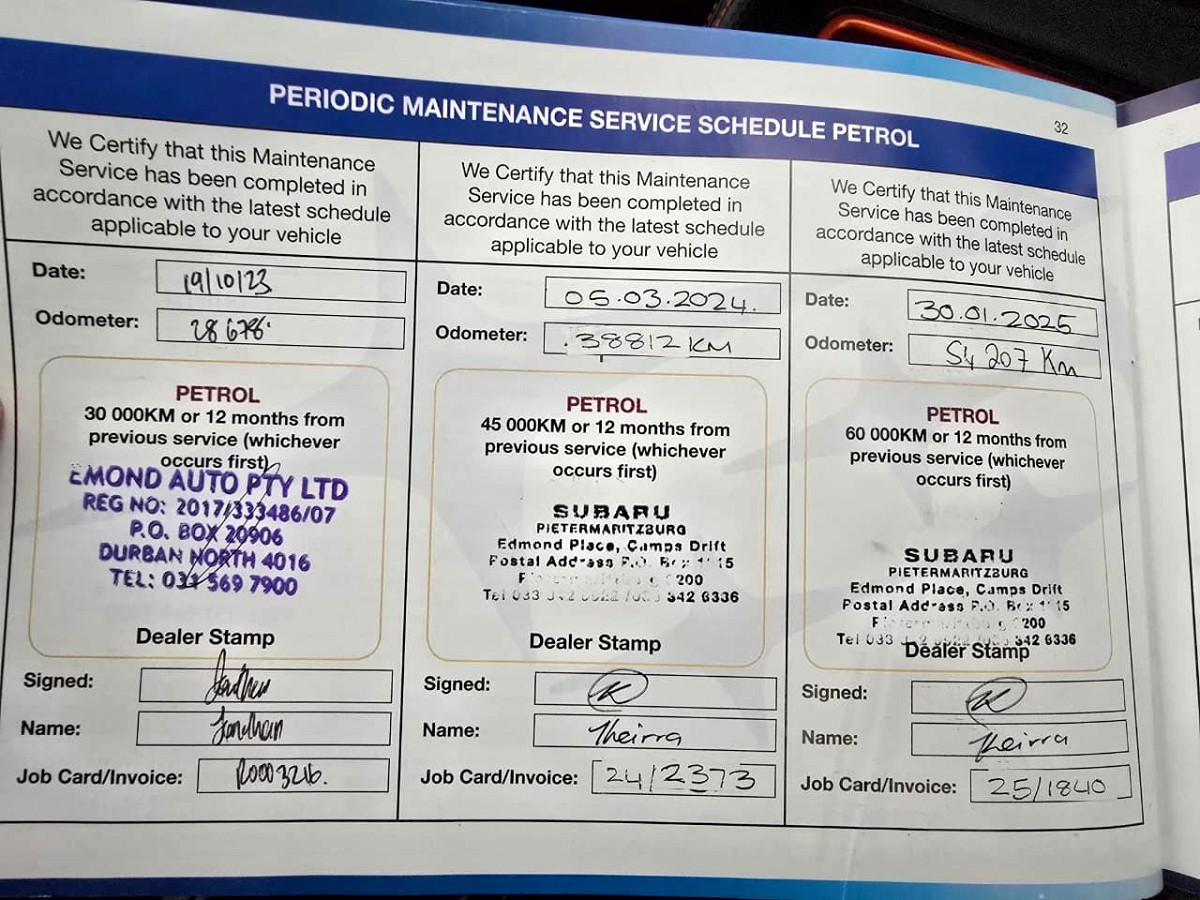 PERIODIC MAINTENANCE SERVICE SCHEDULE PETROL
32
We Certify that this Maintenance
Service has been completed in
accordance with the latest schedule
applicable to your vehicle
Date: 19/10/23
Odometer: 28 678.
PETROL
30 000KM or 12 months from
previous service (whichever
occurs first)
EMOND AUTO PTY LTD
REG NO: 2017/333486/07
P.O. BOX 20906
DURBAN NORTH 4016
TEL: 031 569 7900
Dealer Stamp
Signed:
Name:
Job Card/Invoice: R0003216.
We Certify that this Maintenance
Service has been completed in
accordance with the latest schedule
applicable to your vehicle
Date: 05.03.2024.
Odometer: 38812 KM
PETROL
45 000KM or 12 months from
previous service (whichever
occurs first)
SUBARU
PIETERMARITZBURG
Edmond Place, Camps Drift
Postal Address P.O. Box 15
200
Tel 033 342 6336
Dealer Stamp
Signed:
Name: Theirra
Job Card/Invoice: 24/2373
We Certify that this Maintenance
Service has been completed in
accordance with the latest schedule
applicable to your vehicle
Date: 30.01.2025
Odometer: 54 207 Km
PETROL
60 000KM or 12 months from
previous service (whichever
occurs first)
SUBARU
PIETERMARITZBURG
Edmond Place, Camps Drift
Postal Address P.O. Box 15
200
Tel 033 342 6336
Dealer Stamp
Signed:
Name: Theirra
Job Card/Invoice: 25/1840